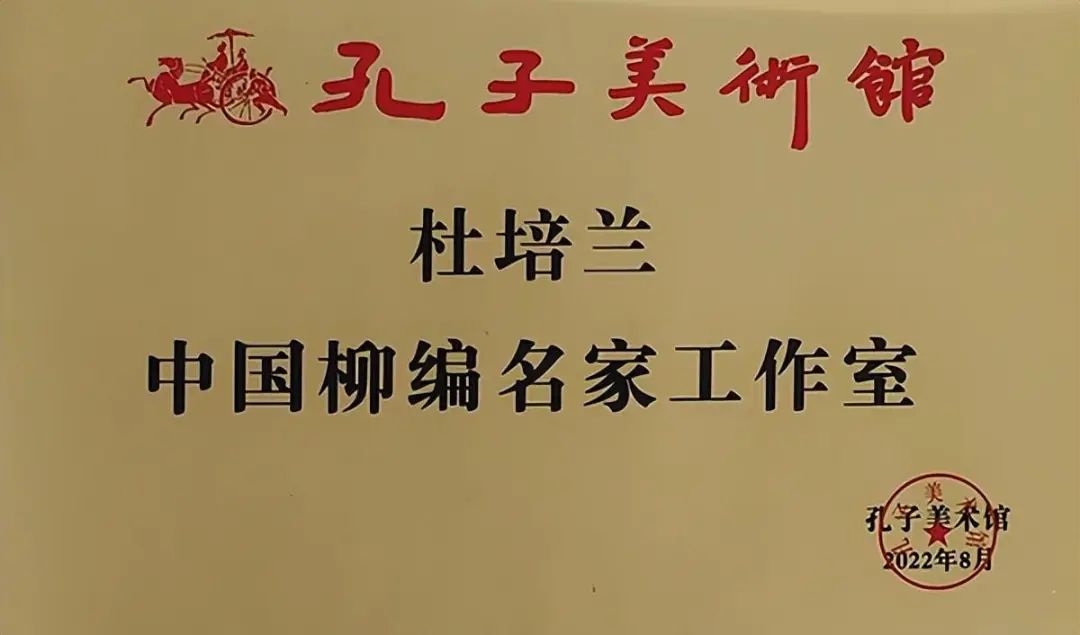 孔子美術館
杜培兰
中国柳编名家工作室
孔子美术馆
2022年8月